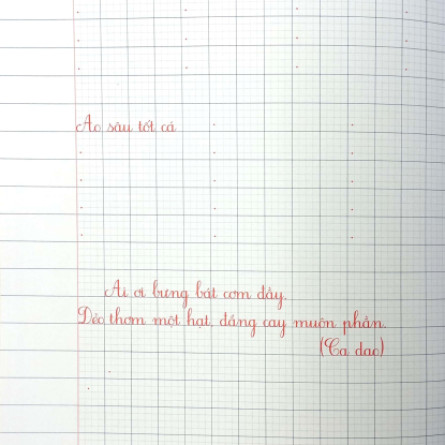 Ao sâu tốt cá
Ai ơi bưng bát cơm đầy.
Dẻo thơm một hạt, đắng cay muôn phần.
(Ca dao)